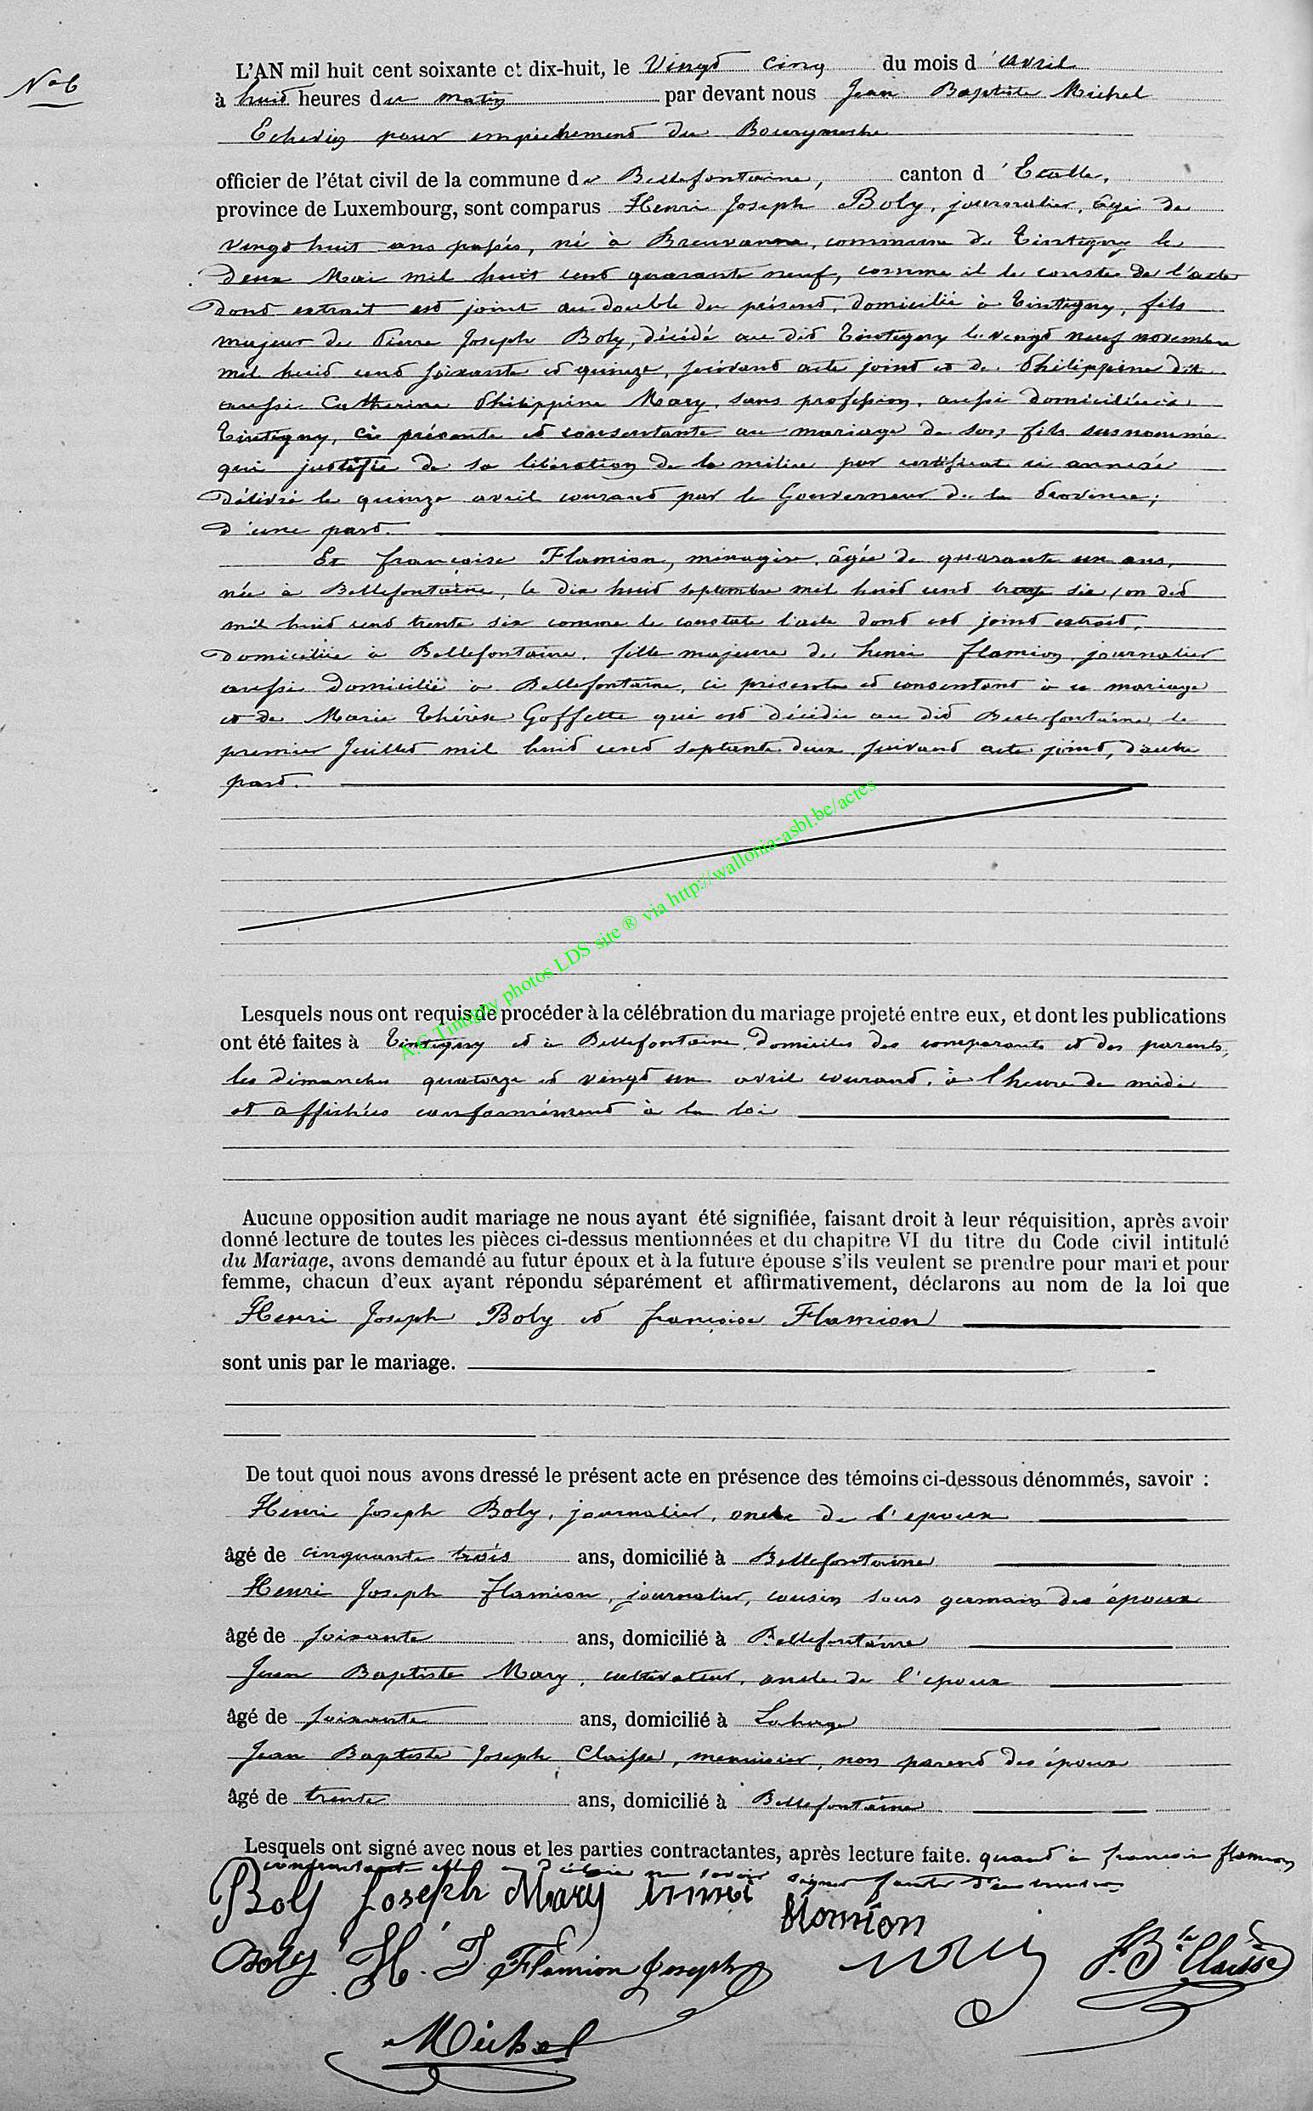 N° 6
L'AN mil huit cent soixante et dix-huit, le Vingt cinq du mois d'avril
à huit heures du matin par devant nous Jean Baptiste Michel
Echevin pour empêchement du Bourgmestre
officier de l'état civil de la commune de Bellefontaine, canton d'Etalle,
province de Luxembourg, sont comparus Henri Joseph Boly, journalier, âgé de
vingt huit ans passés, né à Breuvanne, commune de Tintigny le
deux Mai mil huit cent quarante neuf, comme il le conste de l'acte
dont extrait est joint au double du présent, domicilié à Tintigny, fils
majeur de Pierre Joseph Boly, décédé au dit Tintigny le vingt neuf novembre
mil huit cent soixante et quinze, suivant acte joint et de Philippine dite
aussi Catherine Philippine Mary, sans profession, aussi domiciliée à
Tintigny, ci présente et consentante au mariage de son fils susnommé
qui justifie de sa libération de la milice par certificat ci annexé
délivré le quinze avril courant par le Gouverneur de la Province;
d'une part.
Et françoise Flamion, ménagère, âgée de quarante un ans,
née à Bellefontaine, le dix huit septembre mil huit cent trente six, on dit
mil huit cent trente six comme le constate l'acte dont est joint extrait,
domiciliée à Bellefontaine, fille majeure de henri flamion journalier
aussi domicilié à Bellefontaine, ci présent et consentant à ce mariage
et de Marie Thérèse Goffette qui est décédée au dit Bellefontaine le
premier Juillet mil huit cent septante deux, suivant acte joint, d'autre
part.
A.C.Tintigny photos LDS site ® via http://wallonia-asbl.be/actes
Lesquels nous ont requis de procéder à la célébration du mariage projeté entre eux, et dont les publications
ont été faites à Tintigny et à Bellefontaine, domiciles des comparants et des parents,
les dimanches quatorze et vingt un avril courant, à l'heure de midi
et affichées conformément à la loi
Aucune opposition audit mariage ne nous ayant été signifiée, faisant droit à leur réquisition, après avoir
donné lecture de toutes les pièces ci-dessus mentionnées et du chapitre VI du titre du Code civil intitulé
du Mariage, avons demandé au futur époux et à la future épouse s'ils veulent se prendre pour mari et pour
femme, chacun d'eux ayant répondu séparément et affirmativement, déclarons au nom de la loi que
Henri Joseph Boly et françoise Flamion
sont unis par le mariage.
De tout quoi nous avons dressé le présent acte en présence des témoins ci-dessous dénommés, savoir :
Henri Joseph Boly, journalier, oncle de l'epoux
âgé de cinquante trois ans, domicilié à Bellefontaine
Henri Joseph flamion, journalier, cousin sous germain des époux
âgé de soixante ans, domicilié à Bellefontaine
Jean Baptiste Mary, cultivateur, oncle de l'epoux
âgé de soixante ans, domicilié à Lahage
Jean Baptiste Joseph Claisse, menuisier, non parent des époux
âgé de trente ans, domicilié à Bellefontaine
Lesquels ont signé avec nous et les parties contractantes, après lecture faite. quant à francoise flamion
contractante elle a déclaré ne savoir signer faute d'en
Boly Joseph Mary Flamion
Boly H. J Flamion Joseph J. B.te Claisse
Michel